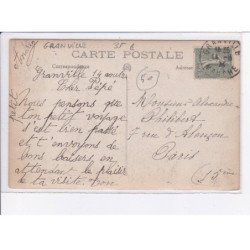 GRANVILLE 35 €
CARTE POSTALE
Correspondance
Adresse
GRANVILLE
Granville 14 août
Cher Pépé
50
Nous pensons que
ton petit voyage
s'est bien passé
et t'envoyons de
bons baisers, en
attendant le plaisir
de ta visite.
Monsieur Alexandre
Philibert
7 rue d'Alençon
Paris
(15ème